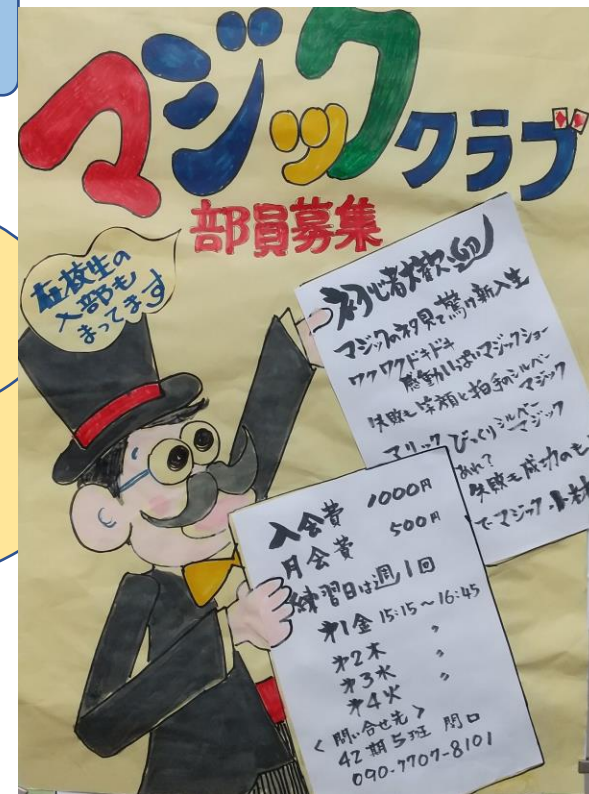 マジッククラブ
部員募集
在校生の
入部も
まってます
初心者大歓迎
マジックのネタ見て驚け新入生
ワクワクドキドキ
感動いっぱいマジックショー
失敗も笑顔と拍手のシルバーマジック
マリックびっくりシルバーマジック
あれ?
失敗も成功のも
でマジック
入会費 1000円
月会費 500円
練習日は週1回
才1金 15:15~16:45
才2木 〃
才3水 〃
才4火 〃
<問い合せ先>
42期5班 関口
090-7707-8101